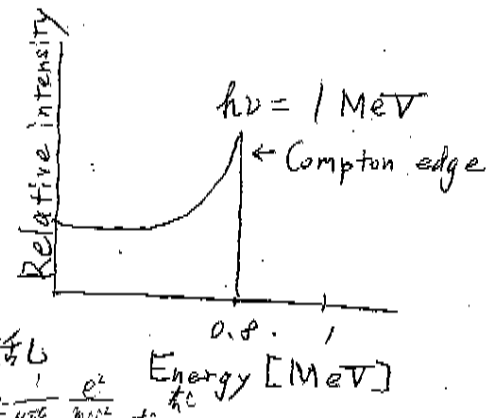 Relative intensity
hν = 1 MeV
← Compton edge
0.8 1
Energy [MeV]
e²
ħc